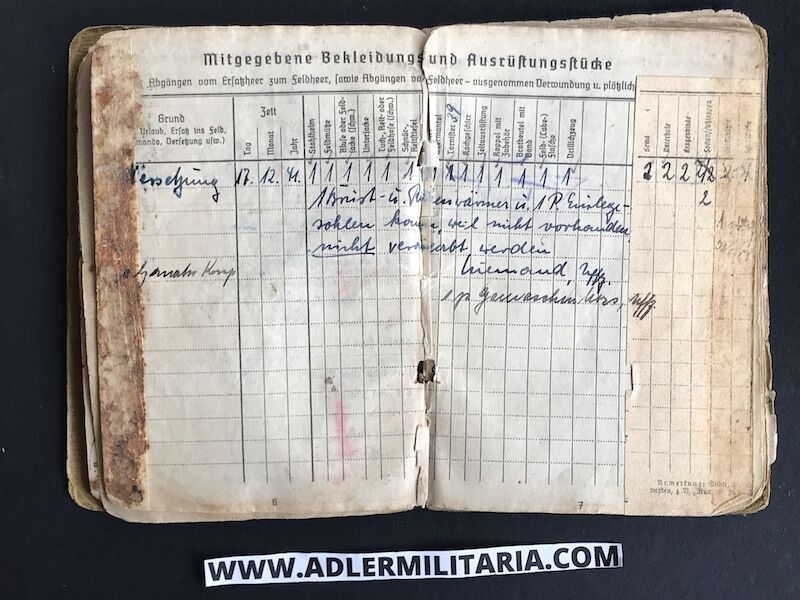 Mitgegebene Bekleidungs und Ausrüstungsstücke
Abgängen vom Ersatzheer zum Feldheer, sowie Abgängen vo Feldheer – ausgenommen Verwundung u. plötzlich
Grund
Urlaub, Ersatz ins Feld,
mando, Versetzung usw.)
Zeit
Tag
Monat
Jahr
Stahlhelm
Feldmütze
Bluse oder Feld-
jacke (schw.)
Unterjacke
Tuch-, Reit- oder
Feldhose (schw.)
Schnür-,
Reitstiefel
mantel
Tornister 39
Kochgeschirr
Zeltausrüstung
Koppel mit
Zubehör
Brotbeutel mit
Band
Feld-(Labe-)
Flasche
Drillichzeug
Hemd
Unterhose
Versetzung 17. 12. 41. 1 1 1 1 1 1 1 1 1 1 1 1 1 2 2 2 2/2
1 Brust- u. R enwärmer u. 1 P. Einlege- 2
sohlen kann, weil nicht vorhanden,
nicht verausgabt werden
Niemand, Uffz.
Komp
1 p Gamaschen Uffz.
6
7
Anmerkung:
werden, z. B.
WWW.ADLERMILITARIA.COM